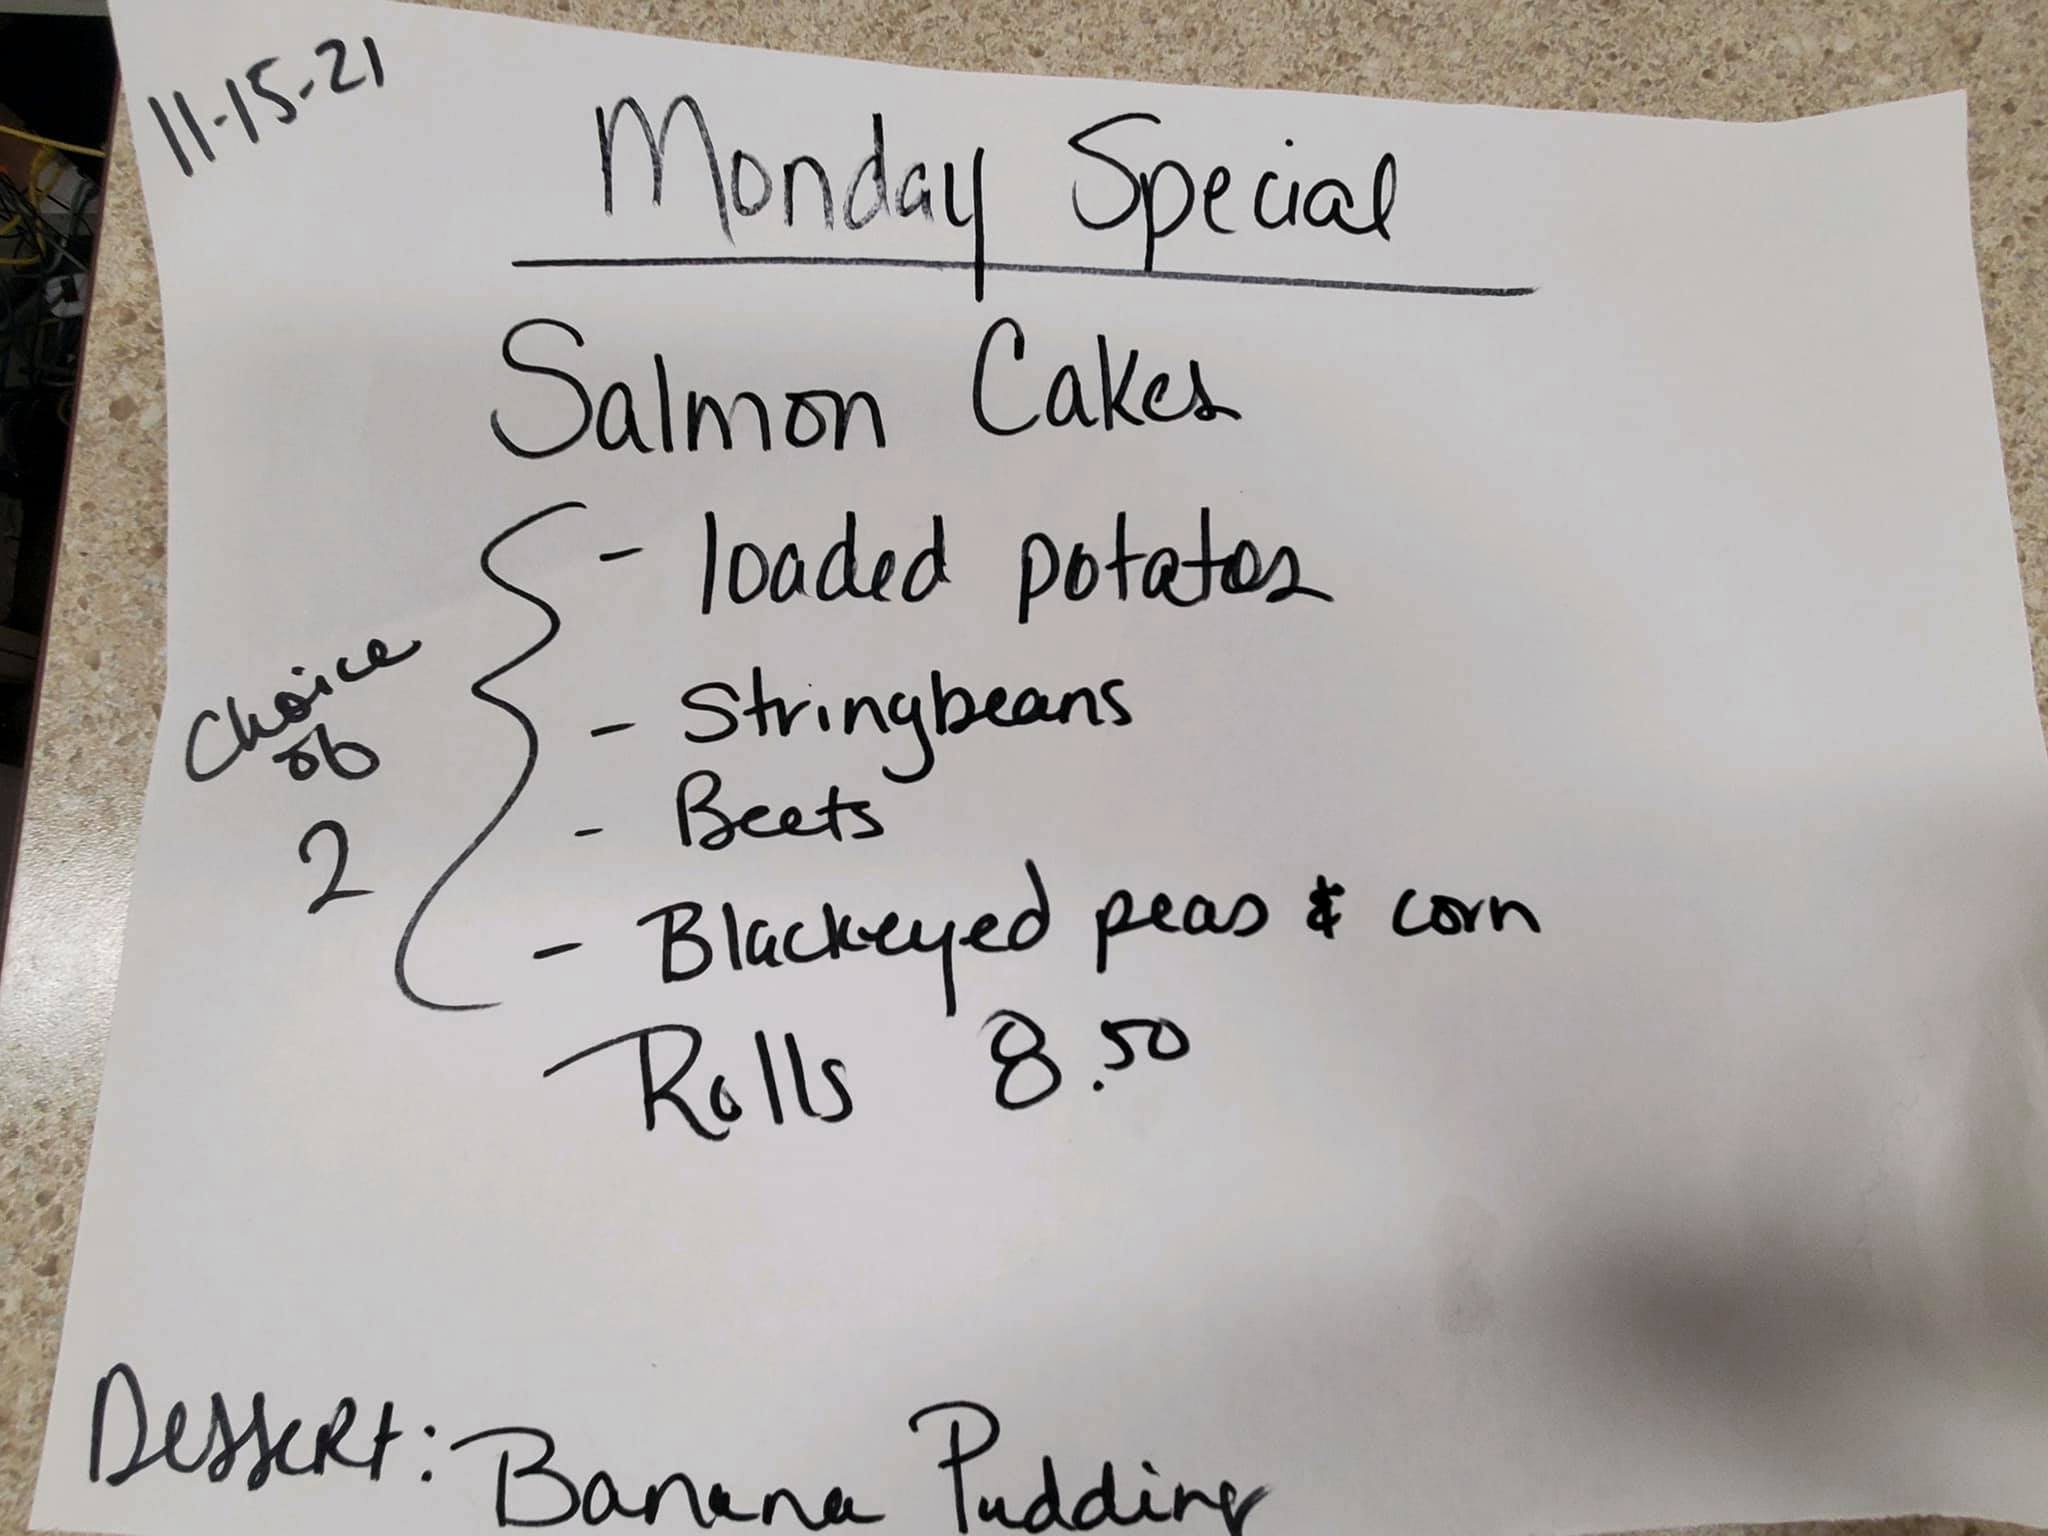 11-15-21
Monday Special
Salmon Cakes
Choice
of
2
- loaded potatoes
- Stringbeans
- Beets
- Blackeyed peas & corn
Rolls 8.50
Dessert: Banana Pudding